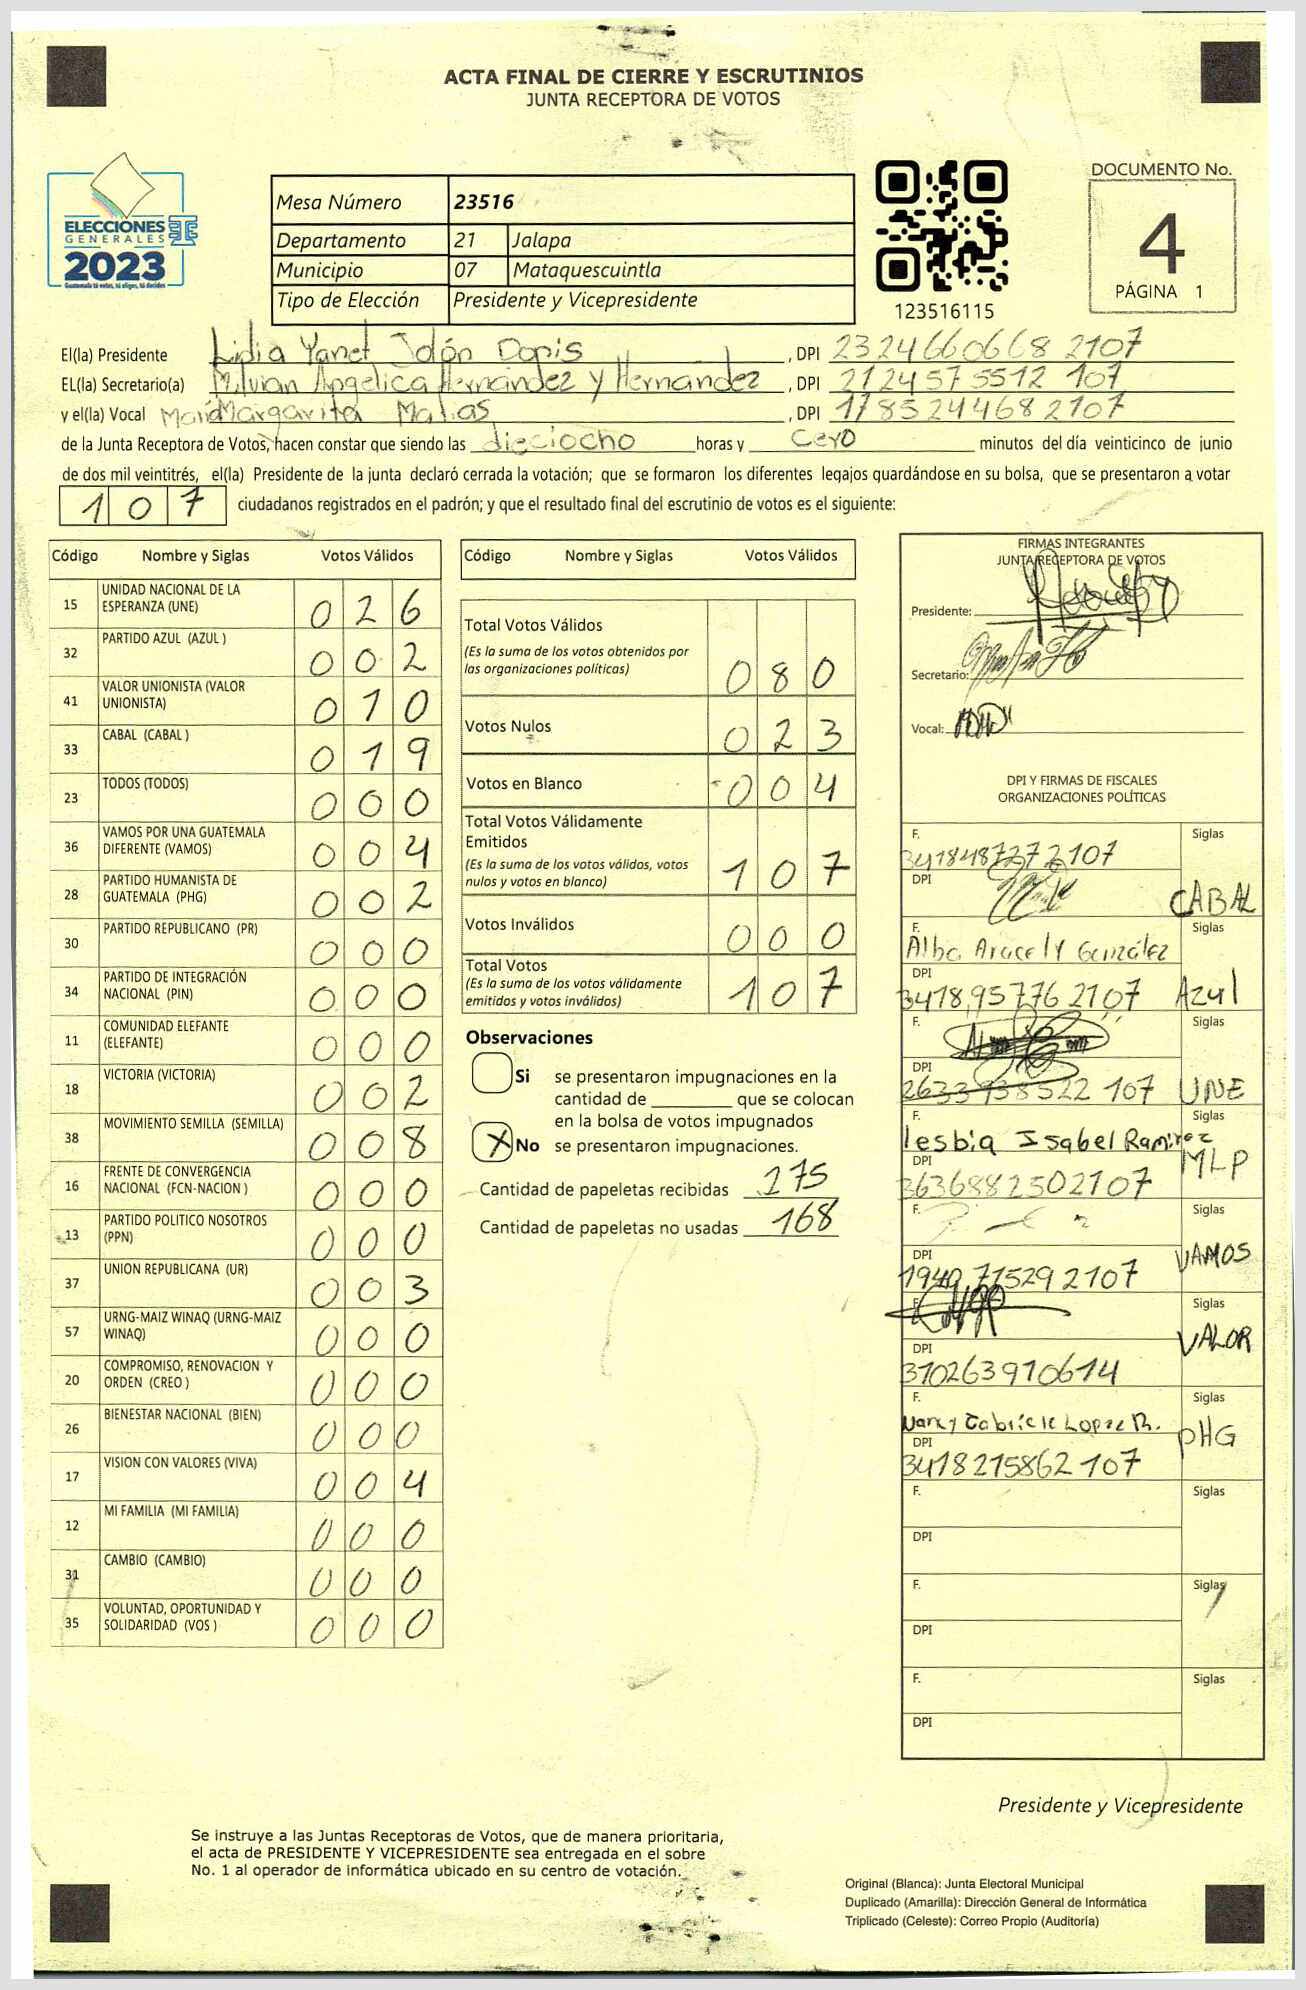 ACTA FINAL DE CIERRE Y ESCRUTINIOS
JUNTA RECEPTORA DE VOTOS
DOCUMENTO No.
4
PÁGINA 1
ELECCIONES
GENERALES
2023
Guatemala tú votas, tú eliges, tú decides
Mesa Número 23516
Departamento 21 Jalapa
Municipio 07 Mataquescuintla
Tipo de Elección Presidente y Vicepresidente
123516115
El(la) Presidente Lidia Yanet Jolón Donis, DPI 2324660668 2107
EL(la) Secretario(a) Milvian Angelica Hernández y Hernandez, DPI 212457 5512 107
y el(la) Vocal Margarita Matias, DPI 178524468 2107
de la Junta Receptora de Votos, hacen constar que siendo las dieciocho horas y cero minutos del día veinticinco de junio
de dos mil veintitrés, el(la) Presidente de la junta declaró cerrada la votación; que se formaron los diferentes legajos guardándose en su bolsa, que se presentaron a votar
107 ciudadanos registrados en el padrón; y que el resultado final del escrutinio de votos es el siguiente:
Código Nombre y Siglas Votos Válidos
15 UNIDAD NACIONAL DE LA ESPERANZA (UNE) 026
32 PARTIDO AZUL (AZUL ) 002
41 VALOR UNIONISTA (VALOR UNIONISTA) 010
33 CABAL (CABAL ) 019
23 TODOS (TODOS) 000
36 VAMOS POR UNA GUATEMALA DIFERENTE (VAMOS) 004
28 PARTIDO HUMANISTA DE GUATEMALA (PHG) 002
30 PARTIDO REPUBLICANO (PR) 000
34 PARTIDO DE INTEGRACIÓN NACIONAL (PIN) 000
11 COMUNIDAD ELEFANTE (ELEFANTE) 000
18 VICTORIA (VICTORIA) 002
38 MOVIMIENTO SEMILLA (SEMILLA) 008
16 FRENTE DE CONVERGENCIA NACIONAL (FCN-NACION ) 000
13 PARTIDO POLITICO NOSOTROS (PPN) 000
37 UNION REPUBLICANA (UR) 003
57 URNG-MAIZ WINAQ (URNG-MAIZ WINAQ) 000
20 COMPROMISO, RENOVACION Y ORDEN (CREO ) 000
26 BIENESTAR NACIONAL (BIEN) 000
17 VISION CON VALORES (VIVA) 004
12 MI FAMILIA (MI FAMILIA) 000
31 CAMBIO (CAMBIO) 000
35 VOLUNTAD, OPORTUNIDAD Y SOLIDARIDAD (VOS ) 000
Código Nombre y Siglas Votos Válidos
Total Votos Válidos 080
(Es la suma de los votos obtenidos por
las organizaciones políticas)
Votos Nulos 023
Votos en Blanco 004
Total Votos Válidamente
Emitidos 107
(Es la suma de los votos válidos, votos
nulos y votos en blanco)
Votos Inválidos 000
Total Votos 107
(Es la suma de los votos válidamente
emitidos y votos inválidos)
Observaciones
Si se presentaron impugnaciones en la
cantidad de ________ que se colocan
en la bolsa de votos impugnados
X No se presentaron impugnaciones.
Cantidad de papeletas recibidas 275
Cantidad de papeletas no usadas 168
FIRMAS INTEGRANTES
JUNTA RECEPTORA DE VOTOS
Presidente:
Secretario:
Vocal:
DPI Y FIRMAS DE FISCALES
ORGANIZACIONES POLÍTICAS
F. Siglas
3418487272107
DPI CABAL
F. Siglas
Alba Aracely González
DPI
3418,95776 2107 Azul
F. Siglas
DPI
2633938522 107 UNE
F. Siglas
lesbia Isabel Ramirez
DPI MLP
3636882502107
F. Siglas
DPI VAMOS
1949 775292107
F. Siglas
VALOR
DPI
310263910614
F. Siglas
Nancy Gabriela Lopez R.
DPI PHG
3418215862 107
F. Siglas
DPI
F. Siglas
DPI
F. Siglas
DPI
Presidente y Vicepresidente
Se instruye a las Juntas Receptoras de Votos, que de manera prioritaria,
el acta de PRESIDENTE Y VICEPRESIDENTE sea entregada en el sobre
No. 1 al operador de informática ubicado en su centro de votación.
Original (Blanca): Junta Electoral Municipal
Duplicado (Amarilla): Dirección General de Informática
Triplicado (Celeste): Correo Propio (Auditoría)